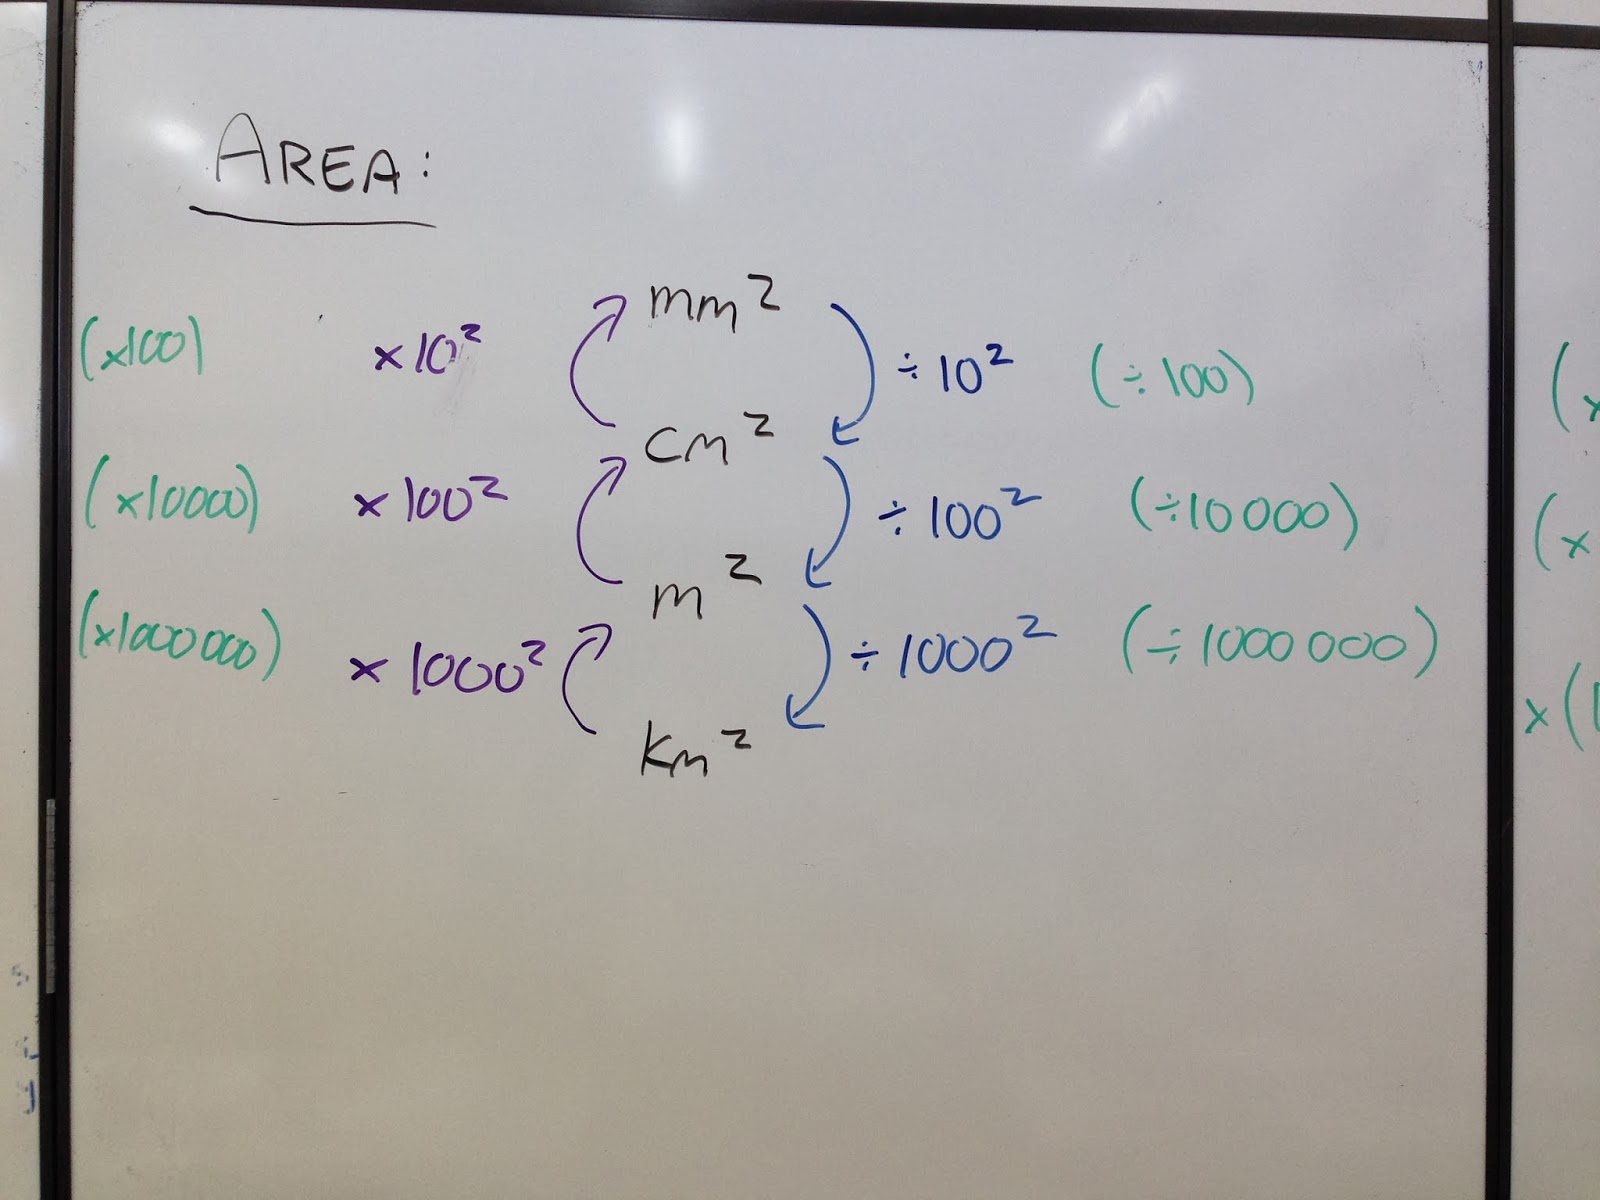 AREA:
mm²
(×100) ×10² ÷10² (÷100)
cm²
(×10000) ×100² ÷100² (÷10000)
m²
(×1000000) ×1000² ÷1000² (÷1000000)
km²
(×
(×
×(